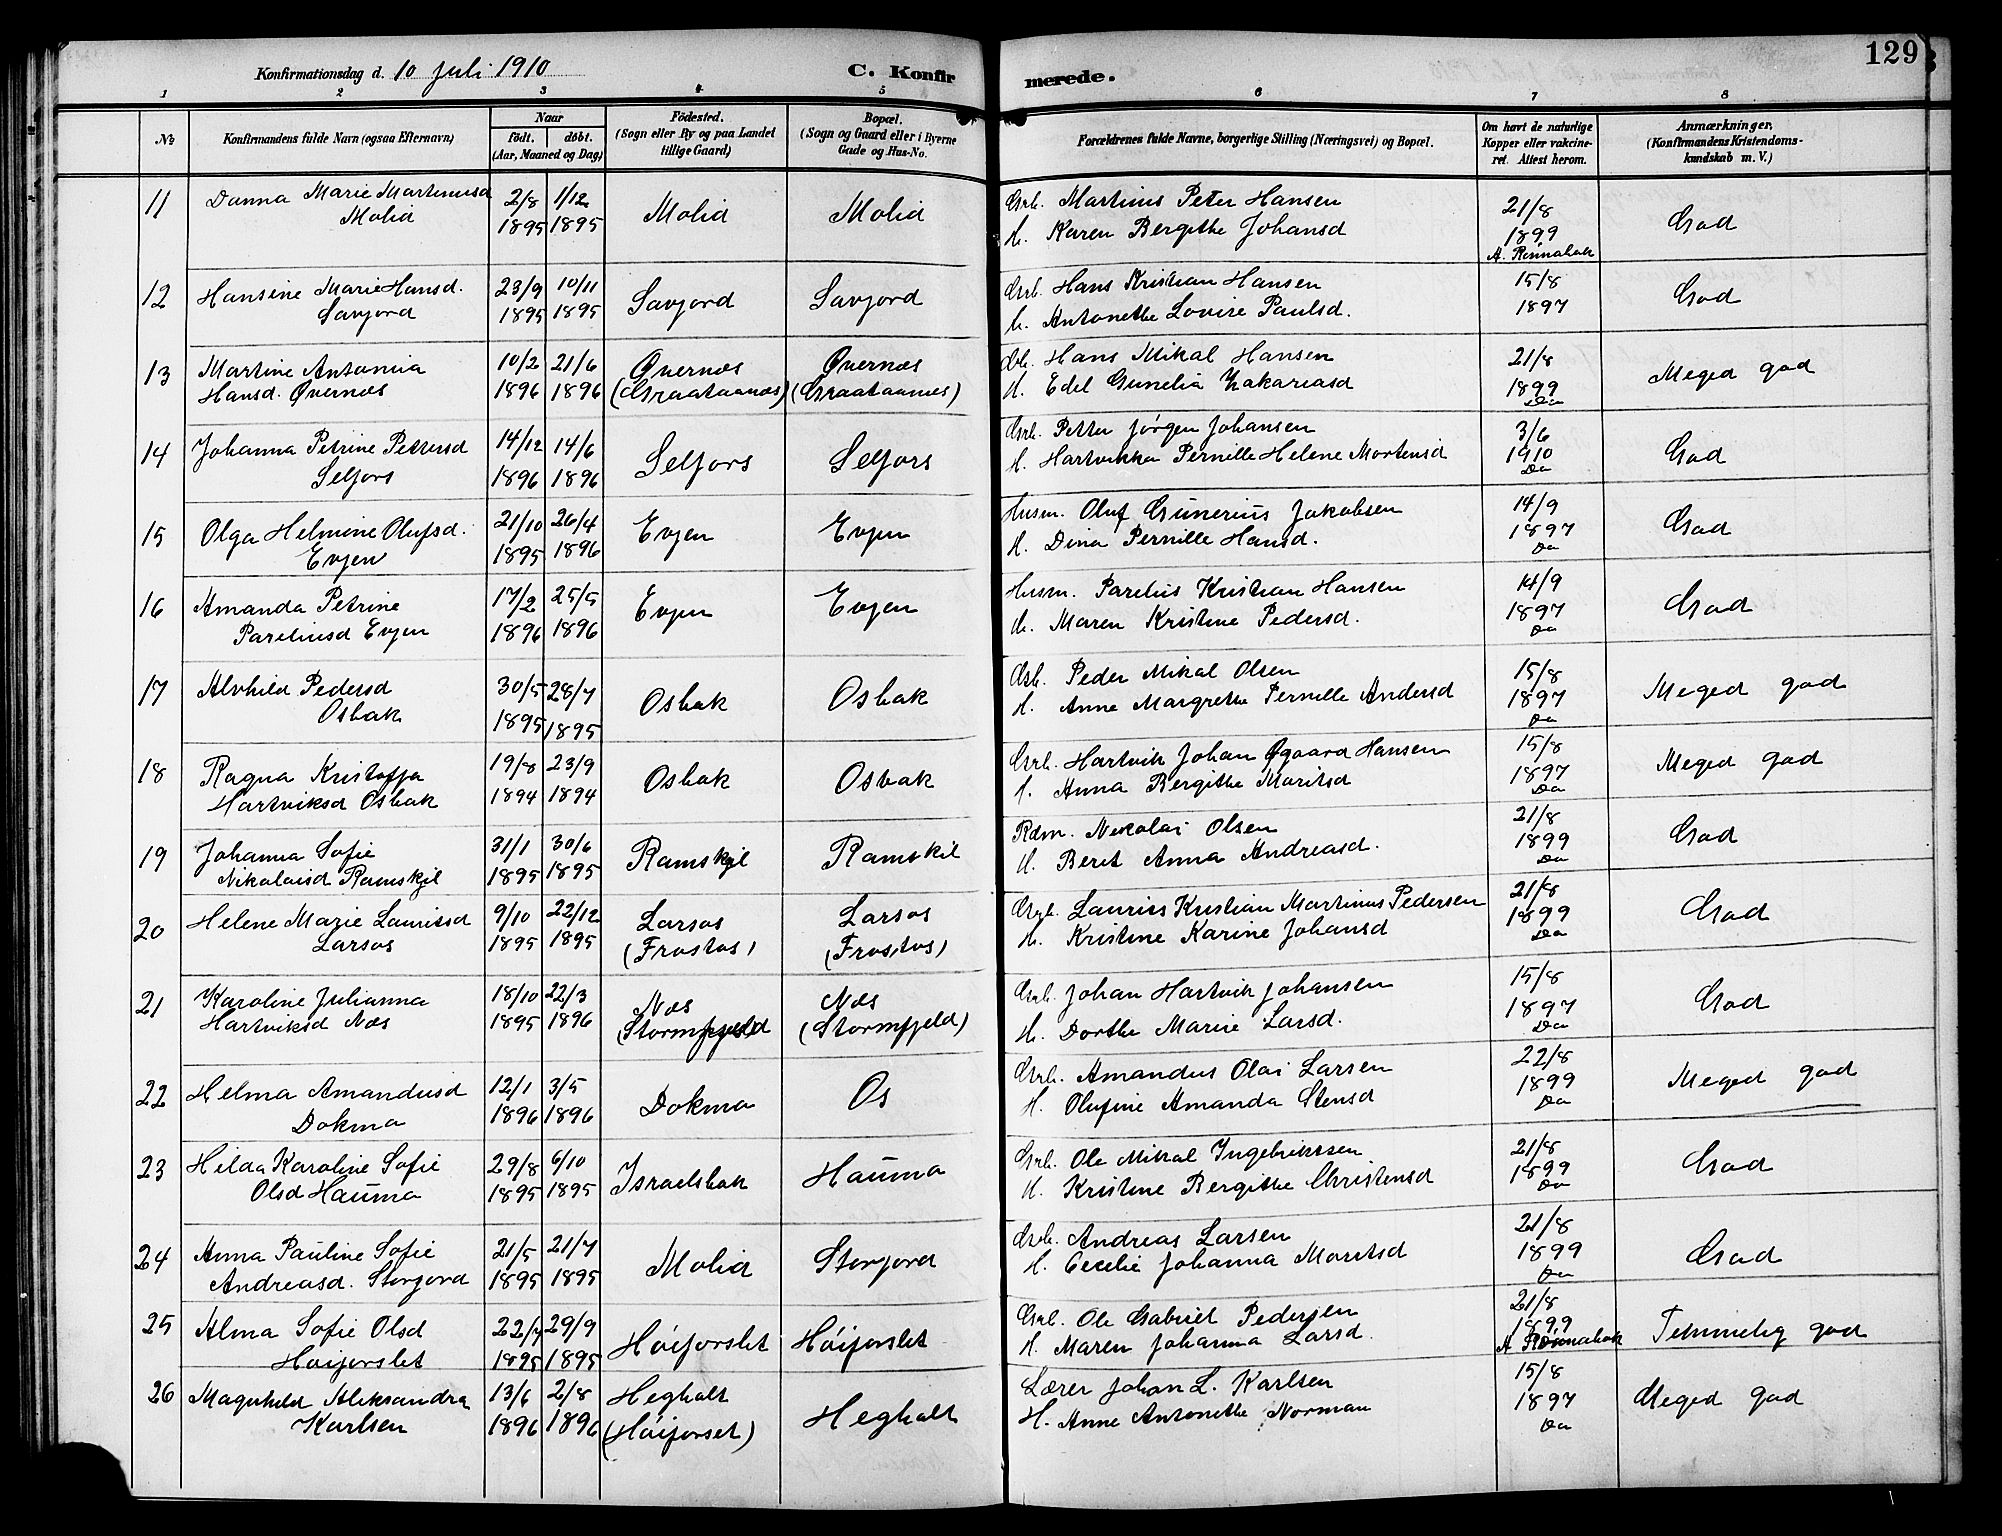 129
Konfirmationsdag d. 10 juli 1910 C. Konfirmerede.
1 2 3 4 5 6 7 8
No. Konfirmandens fulde Navn (ogsaa Efternavn) Naar født. døbt. (Aar, Maaned og Dag) Födested. (Sogn eller By og paa Landet tillige Gaard) Bopæl. (Sogn og Gaard eller i Byerne Gade og Hus-No. Forældrenes fulde Navne, borgerlige Stilling (Næringsvei) og Bopæl. Om havt de naturlige Kopper eller vakcineret. Attest herom. Anmærkninger, (Konfirmandens Kristendomskundskab m. V.)
11 Danna Marie Martinusd 2/8 1/12 Molid Molid Grb. Martinus Peter Hansen 21/8 God
Molid 1895 1895 H. Karen Bergithe Johansd 1899
A. Rønnabak
12 Hansine Marie Hansd. 23/9 10/11 Savjord Savjord Grb. Hans Kristian Hansen 15/8 God
Savjord 1895 1895 H. Antonethe Lovise Paulsd. 1897
13 Martine Antonia 10/2 21/6 Øvernæs Øvernæs Grb. Hans Mikal Hansen 21/8 Meged god
Hansd. Øvernæs 1896 1896 (Graataanæs) (Graataanæs) H. Edel Gunelia Zakariasd 1899
Do
14 Johanna Petrine Pettersd 14/12 14/6 Selfors Selfors Grb. Petter Jørgen Johansen 3/6 God
Selfors 1896 1896 H. Hartvikka Pernille Helene Mortensd 1910
Do
15 Olga Helmine Olufsd. 21/10 26/4 Evjen Evjen Husm. Oluf Gunerius Jakobsen 14/9 God
Evjen 1895 1896 H. Dina Pernille Hansd. 1897
Do
16 Amanda Petrine 17/2 25/5 Evjen Evjen Husm. Parelius Kristian Hansen 14/9 God
Pareliusd Evjen 1896 1896 H. Maren Kristine Pedersd. 1897
Do
17 Alvhild Pedersd 30/5 28/7 Osbak Osbak Grb. Peder Mikal Olsen 15/8 Meged god
Osbak 1895 1895 H. Anne Margrethe Pernille Andersd 1897
Do
18 Ragna Kristoffa 19/8 23/9 Osbak Osbak Grb. Hartvik Johan Øgaard Hansen 15/8 Meged god
Hartviksd Osbak 1894 1894 H. Anna Bergithe Moritsd 1897
Do
19 Johanna Sofie 31/1 30/6 Ramskjel Ramskil Rdm. Nikolai Olsen 21/8 God
Nikolaisd Ramskjel 1895 1895 H. Beret Anna Andreasd. 1899
Do
20 Helene Marie Lauritsd 9/10 22/12 Larsos Larsos Grb. Laurits Kristian Martinus Pedersen 21/8 God
Larsos 1895 1895 (Frostos) (Frostos) H. Kristine Karine Johansd 1899
Do
21 Karoline Julianna 18/10 22/3 Næs Næs Grb. Johan Hartvik Johansen 15/8 God
Hartviksd Næs 1895 1896 (Stormfjeld (Stormfjeld) H. Dorthe Marie Larsd. 1897
Do
22 Helma Amandusd 12/1 3/5 Dokmo Os Grb. Amandus Olai Larsen 22/8 Meged god
Dokmo 1896 1896 H. Olufine Amanda Stensd 1899
Do
23 Hilda Karoline Sofie 29/8 6/10 Israelsbak Haumo Grb. Ole Mikal Ingebriktsen 21/8 God
Olsd Haumo 1895 1895 H. Kristine Bergithe Christensd 1899
Do
24 Anna Pauline Sofie 21/5 21/7 Molid Storjord Grb. Andreas Larsen 21/8 God
Andreasd. Storjord 1895 1895 H. Cecelie Johanna Moritsd 1899
Do
25 Alma Sofie Olsd 22/7 29/9 Høiforslet Høiforslet Grb. Ole Gabriel Pedersen 21/8 Temmelig god
Høiforslet 1895 1895 H. Maren Johanna Larsd. 1899
A Rønnabak
26 Magnhild Aleksandra 13/6 2/8 Heghalt Heghalt Lærer Johan L. Karlsen 15/8 Meged god
Karlsen 1896 1896 (Høiforset) H. Anne Antonethe Norman 1897
Do